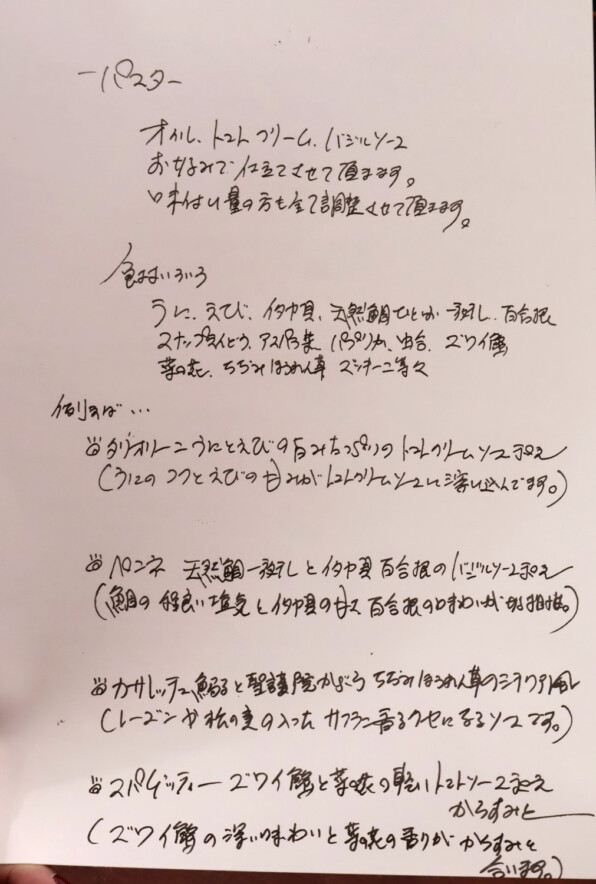 ーパスター
オイル、トマトクリーム、バジルソース
お好みで仕立てさせて頂きます。
味付け量の方も全て調整させて頂きます。
食材いろいろ
うに、えび、イタヤ貝、天然鯛ひと汐一夜干し、百合根
スナップえんどう、アスパラ菜、パプリカ、蛤、ズワイ蟹
菜の花、ちぢみほうれん草 ズッキーニ等々
例えば…
タリオリーニ うにとえびの旨みたっぷりのトマトクリームソース
(うにのコクとえびの甘みがトマトクリームソースに溶け込んでます。)
ペンネ 天然鯛一夜干しとイタヤ貝 百合根のバジルソース
(鯛の程良い塩気とイタヤ貝の甘さ 百合根の味わいが好相性。)
カサレッチェ 鰯と聖護院かぶら ちぢみほうれん草のシチリア風
(レーズンや松の実の入った サフラン香るクセになるソースです。)
スパゲッティー ズワイ蟹と菜の花の軽いトマトソース
からすみと
(ズワイ蟹の深い味わいと菜の花の香りが からすみと
合います。)